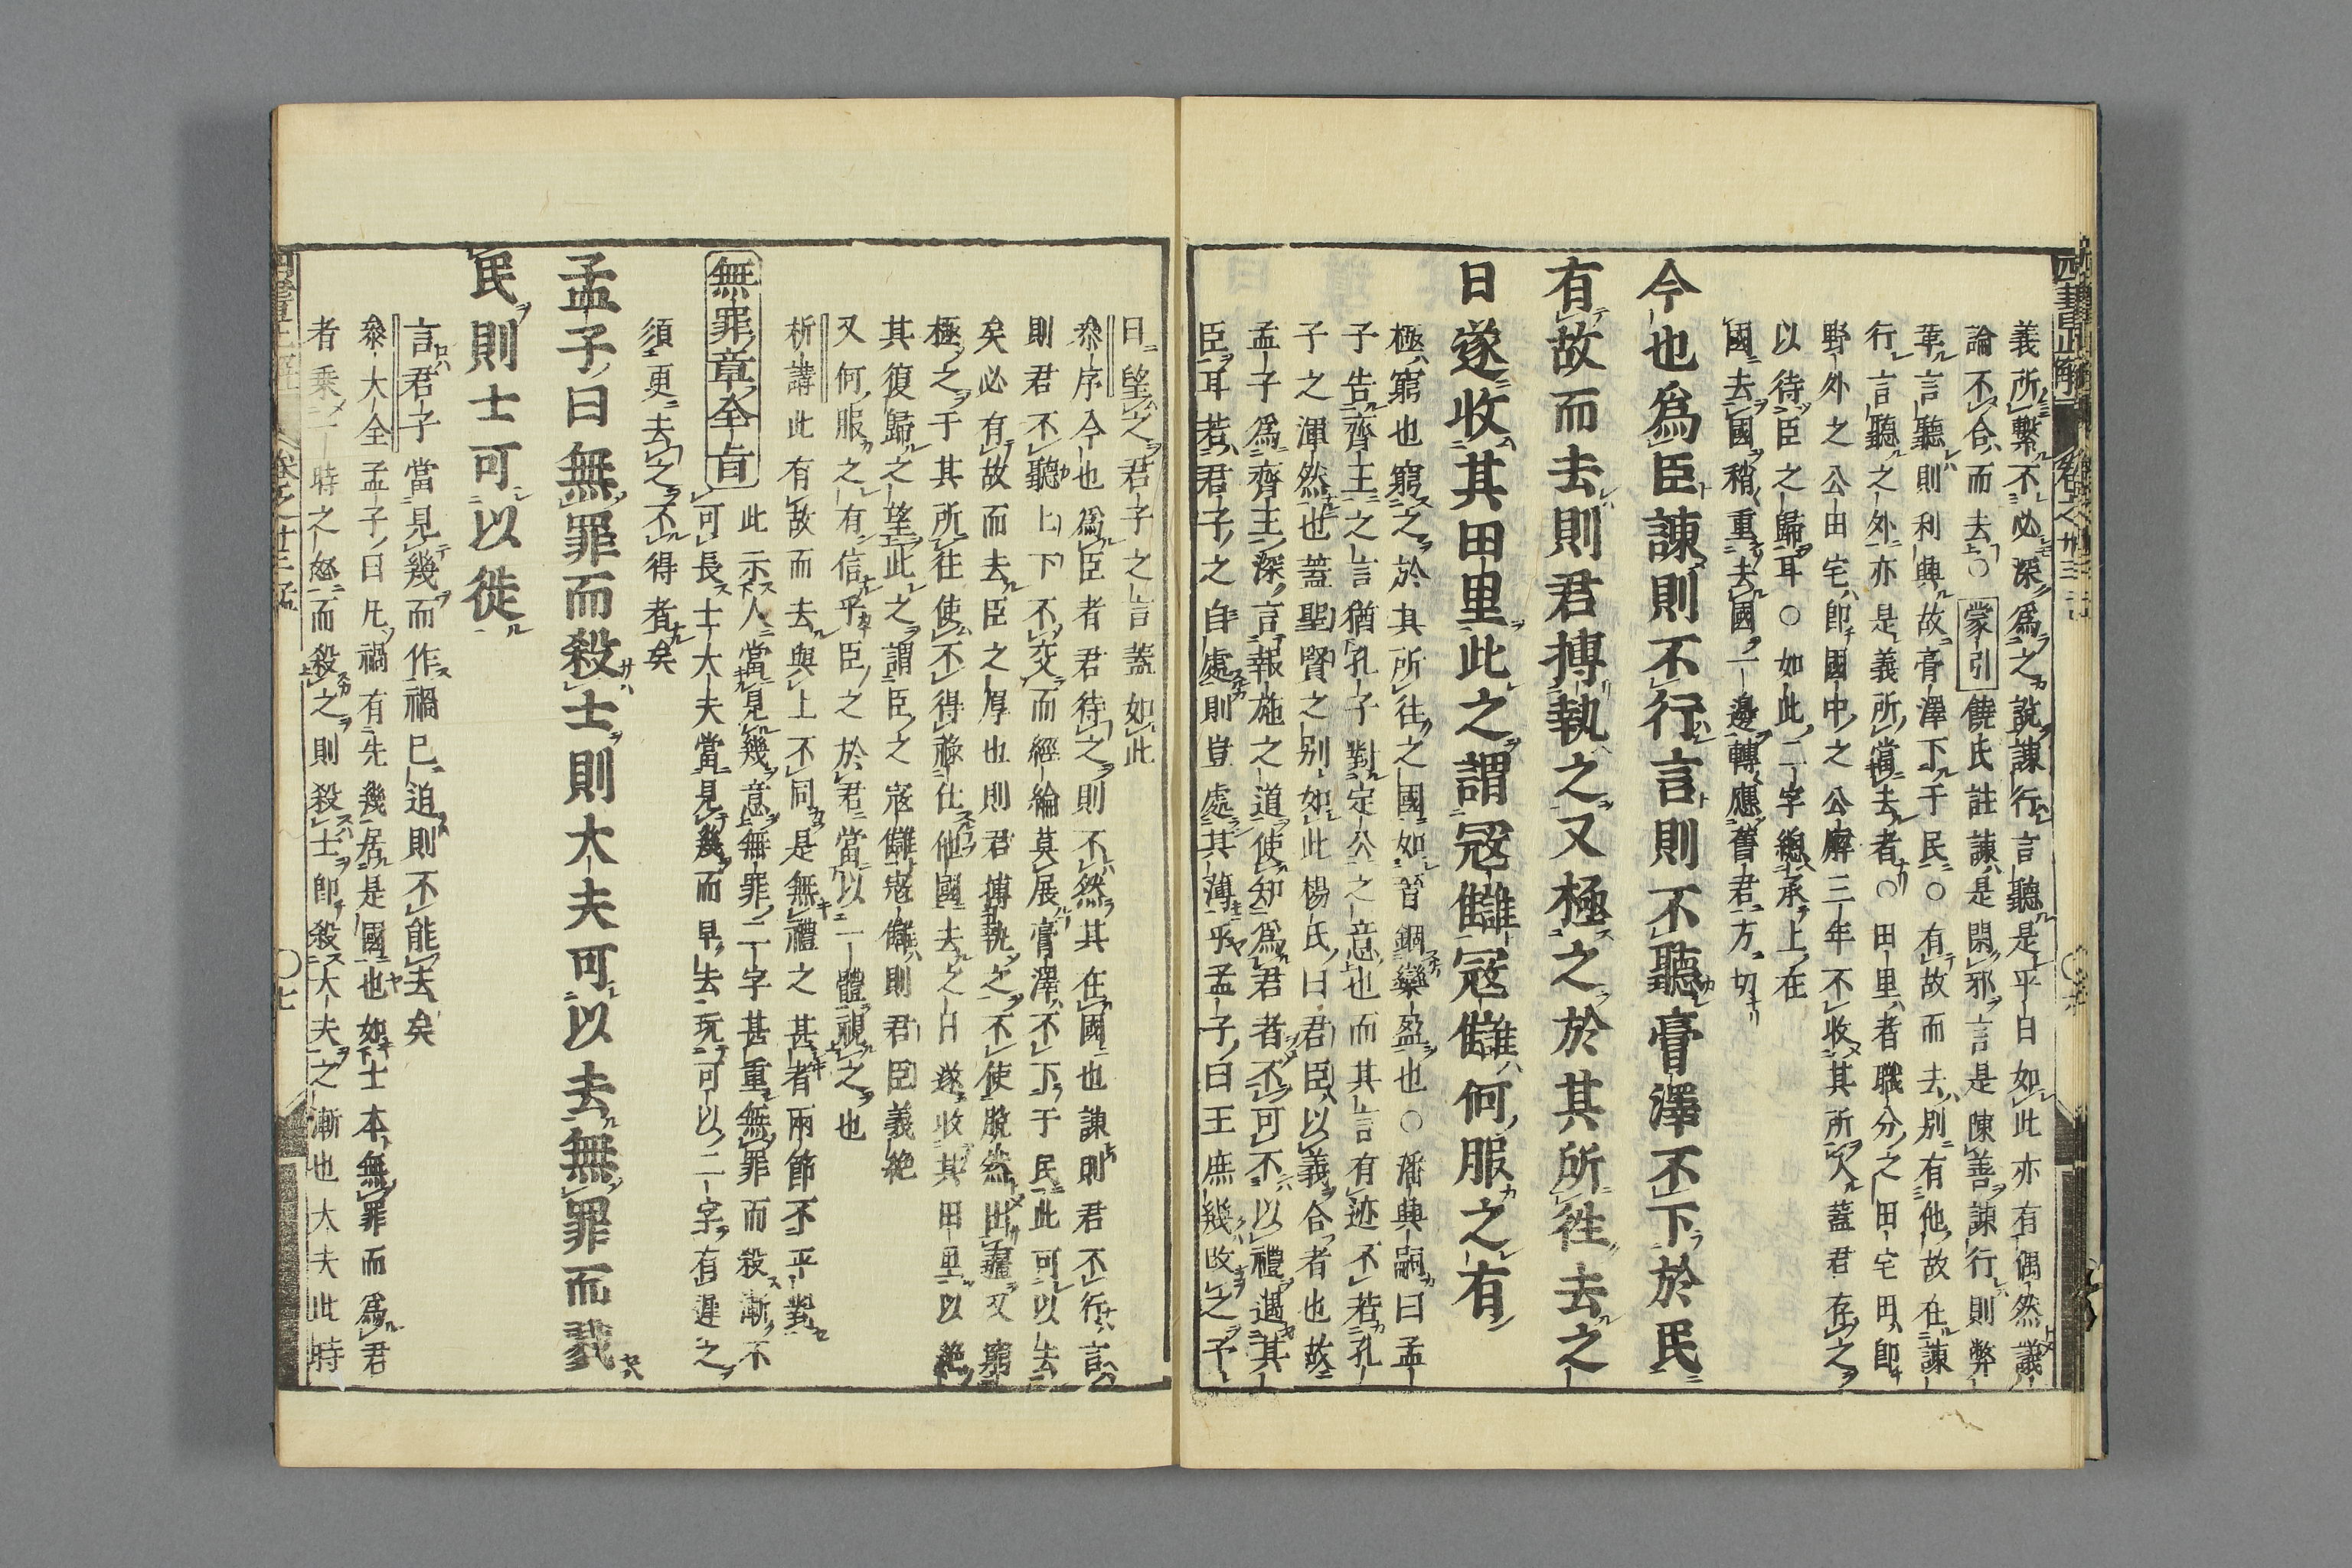 義所繫不必深爲之說諫行言聽是平日如此亦有偶然議
論不合而去○蒙引饒氏註諫是閑邪言是陳善諫行則弊
革言聽則利興故膏澤下于民○有故而去別有他故在諫
行言聽之外亦是義所當去者○田里者職分之田宅田即
野外之公田宅即國中之公廨三年不收其所入蓋君存之
以待臣之歸耳○如此二字總承上在
國去國稍重去國一邊轉應舊君方切
今也爲臣諫則不行言則不聽膏澤不下於民
有故而去則君搏執之又極之於其所往去之
日遂收其田里此之謂寇讎寇讎何服之有
極窮也窮之於其所往之國如晉錮欒盈也○潘興嗣曰孟
子告齊王之言猶孔子對定公之意也而其言有迹不若孔
子之渾然也蓋聖賢之別如此楊氏曰君臣以義合者也故
孟子爲齊王深言報施之道使知爲君者不可不以禮遇其
臣耳若君子之自處則豈處其薄乎孟子曰王庶幾改之予
日望之君子之言蓋如此
叅序今也爲臣者君待之則不然其在國也諫則君不行言
則君不聽上下不交而經綸莫展膏澤不下于民此可以去
矣必有故而去臣之厚也則君搏執之不使脫然出疆又窮
極之于其所往使不得祿仕他國去之日遂收其田里以絶
其復歸之望此之謂臣之寇讎寇讎則君臣義絶
又何服之有信乎臣之於君當以一體視之也
析講此有故而去與上不同是無禮之甚者兩節不平對
無罪章全旨
此示人當見幾意無罪二字甚重無罪而殺漸不
可長士大夫當見幾而早去玩可以二字有遲之
須更去之不得者矣
孟子曰無罪而殺士則大夫可以去無罪而戮
民則士可以徙
言君子當見幾而作禍已迫則不能去矣
叅大全孟子曰凡禍有先幾居是國也如士本無罪而爲君
者乘一時之怒而殺之則殺士即殺大夫之漸也大夫此時